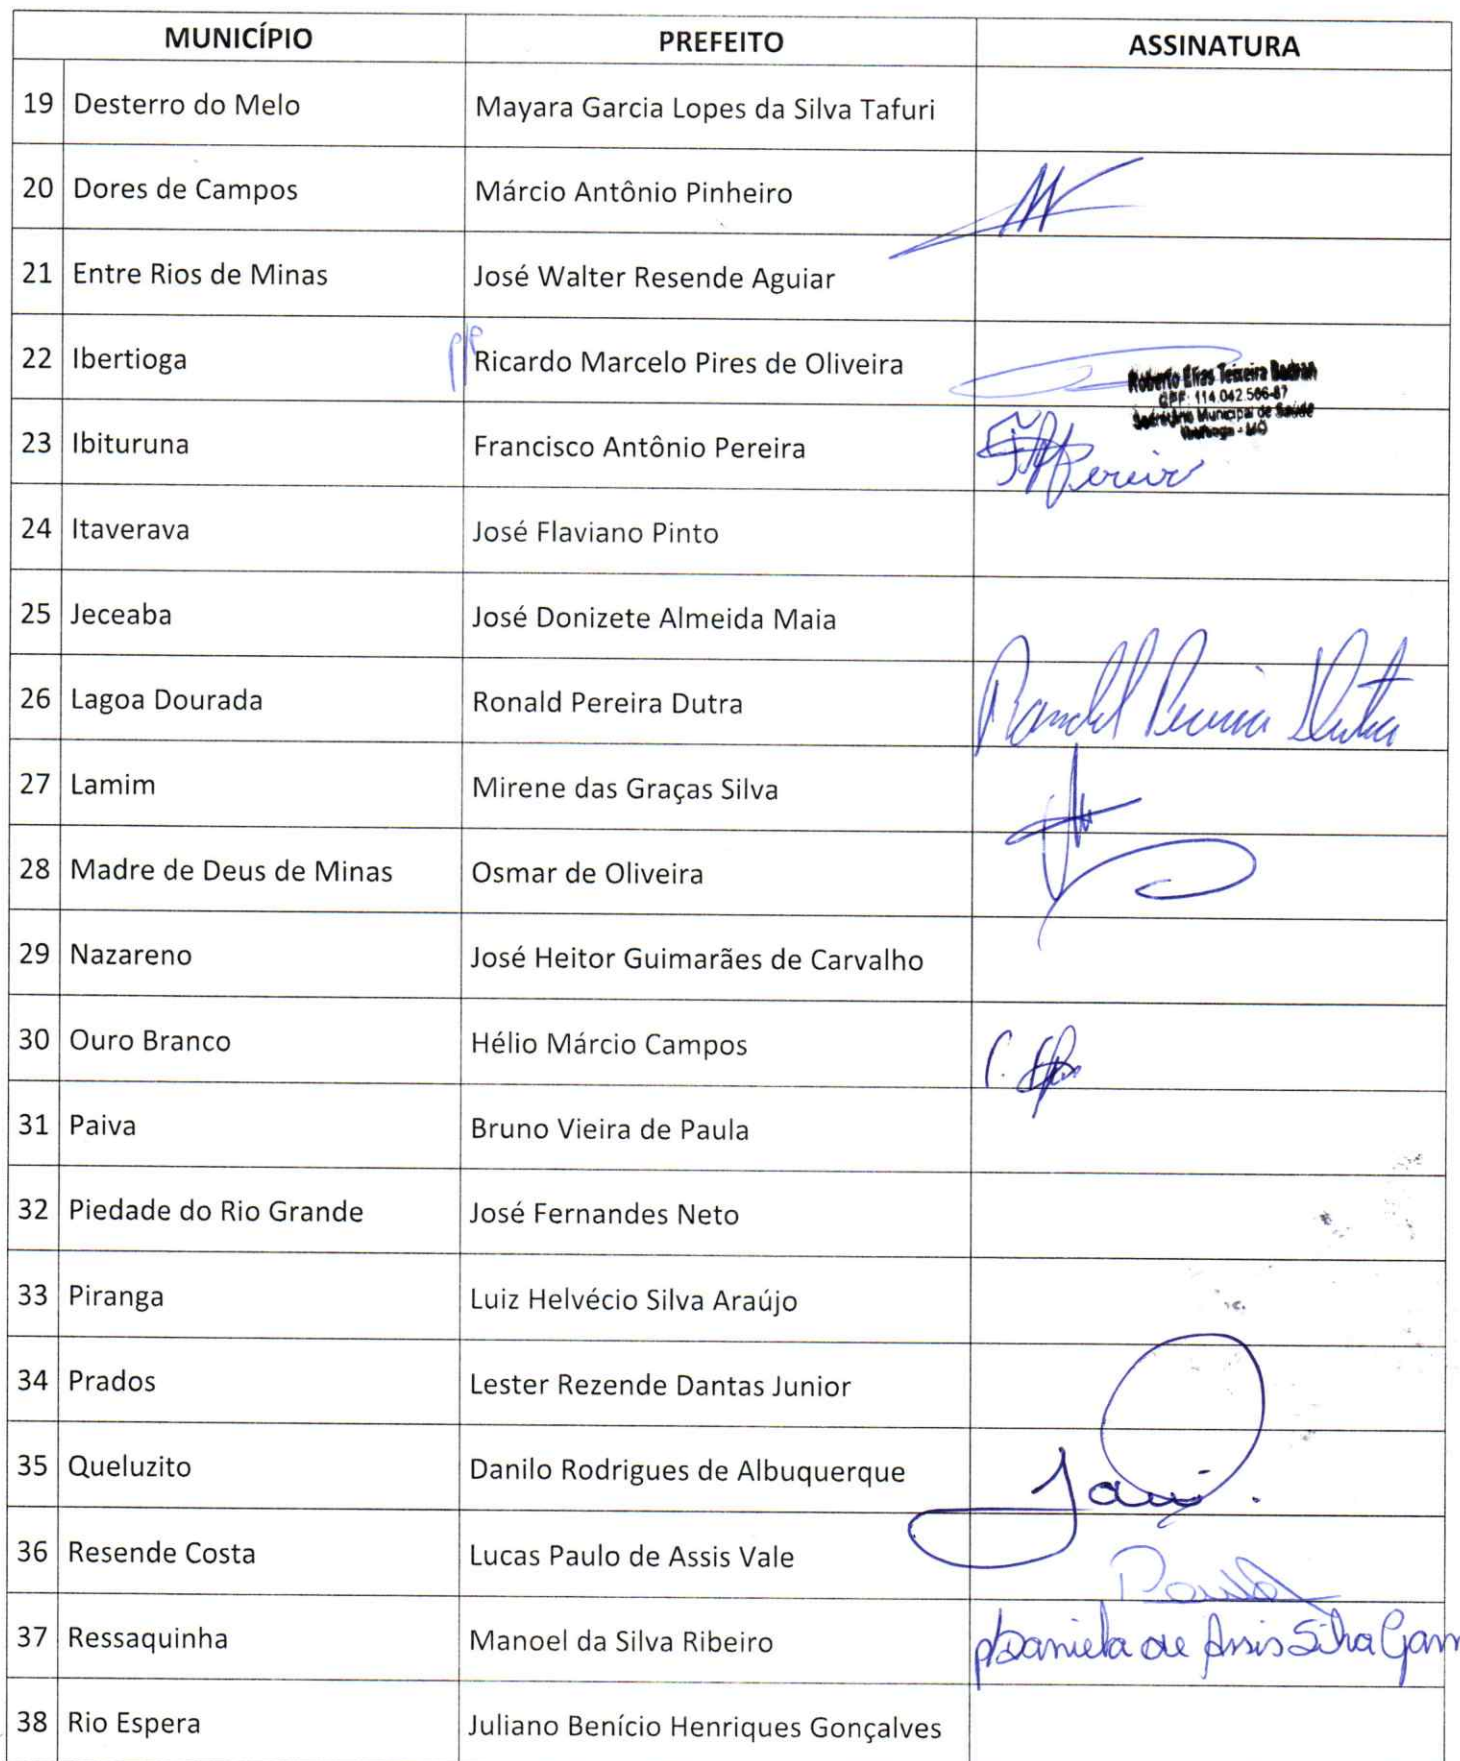 MUNICÍPIO PREFEITO ASSINATURA
19 Desterro do Melo Mayara Garcia Lopes da Silva Tafuri
20 Dores de Campos Márcio Antônio Pinheiro
21 Entre Rios de Minas José Walter Resende Aguiar
22 Ibertioga p/p Ricardo Marcelo Pires de Oliveira
Roberto Elias Teixeira Badran
CPF: 114.042.566-87
Secretário Municipal de Saúde
Ibertioga - MG
23 Ibituruna Francisco Antônio Pereira Pereira
24 Itaverava José Flaviano Pinto
25 Jeceaba José Donizete Almeida Maia
26 Lagoa Dourada Ronald Pereira Dutra Ronald Pereira Dutra
27 Lamim Mirene das Graças Silva
28 Madre de Deus de Minas Osmar de Oliveira
29 Nazareno José Heitor Guimarães de Carvalho
30 Ouro Branco Hélio Márcio Campos
31 Paiva Bruno Vieira de Paula
32 Piedade do Rio Grande José Fernandes Neto
33 Piranga Luiz Helvécio Silva Araújo
34 Prados Lester Rezende Dantas Junior
35 Queluzito Danilo Rodrigues de Albuquerque
36 Resende Costa Lucas Paulo de Assis Vale
37 Ressaquinha Manoel da Silva Ribeiro p/Daniela de Assis Silva Gam
38 Rio Espera Juliano Benício Henriques Gonçalves